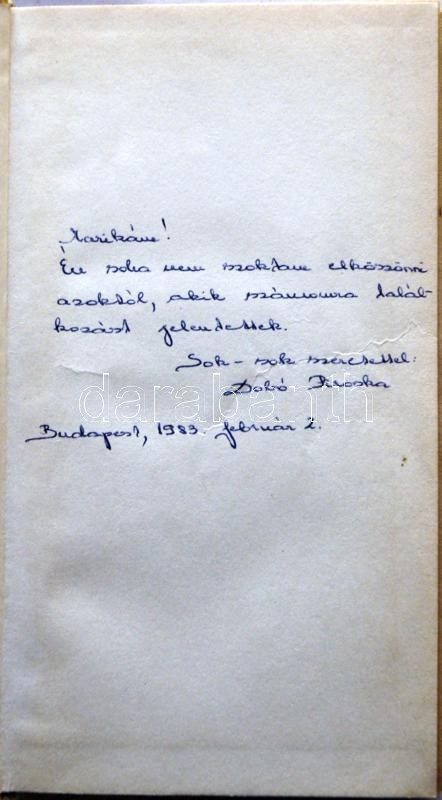 Marikám!
Én soha nem szoktam elköszönni
azoktól, akik számomra talál-
kozást jelentettek.
Sok-sok szeretettel:
Dobó Piroska
Budapest, 1983. február 2.
darabanth.com